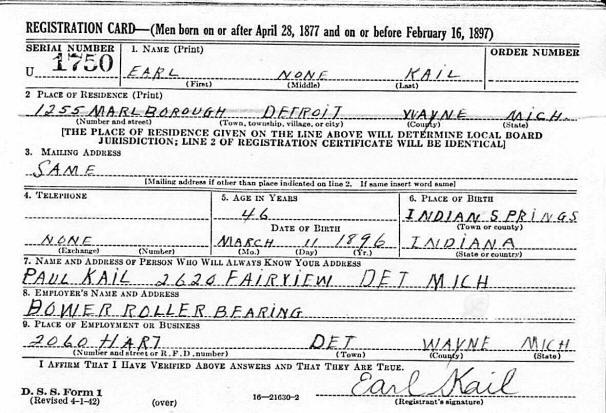 REGISTRATION CARD—(Men born on or after April 28, 1877 and on or before February 16, 1897)
SERIAL NUMBER 1. NAME (Print) ORDER NUMBER
U 1750 EARL NONE KAIL
(First) (Middle) (Last)
2 PLACE OF RESIDENCE (Print)
1255 MARLBOROUGH DETROIT WAYNE MICH.
(Number and street) (Town, township, village, or city) (County) (State)
[THE PLACE OF RESIDENCE GIVEN ON THE LINE ABOVE WILL DETERMINE LOCAL BOARD
JURISDICTION; LINE 2 OF REGISTRATION CERTIFICATE WILL BE IDENTICAL]
3. MAILING ADDRESS
SAME
[Mailing address if other than place indicated on line 2. If same insert word same]
4. TELEPHONE 5. AGE IN YEARS 6. PLACE OF BIRTH
46 INDIAN SPRINGS
DATE OF BIRTH (Town or county)
NONE MARCH 11 1896 INDIANA
(Exchange) (Number) (Mo.) (Day) (Yr.) (State or country)
7. NAME AND ADDRESS OF PERSON WHO WILL ALWAYS KNOW YOUR ADDRESS
PAUL KAIL 2620 FAIRVIEW DET MICH
8. EMPLOYER'S NAME AND ADDRESS
BOWER ROLLER BEARING
9. PLACE OF EMPLOYMENT OR BUSINESS
2060 HART DET WAYNE MICH
(Number and street or R. F. D. number) (Town) (County) (State)
I AFFIRM THAT I HAVE VERIFIED ABOVE ANSWERS AND THAT THEY ARE TRUE.
Earl Kail
D. S. S. Form 1
(Revised 4-1-42) (over) 16—21630-2 (Registrant's signature)